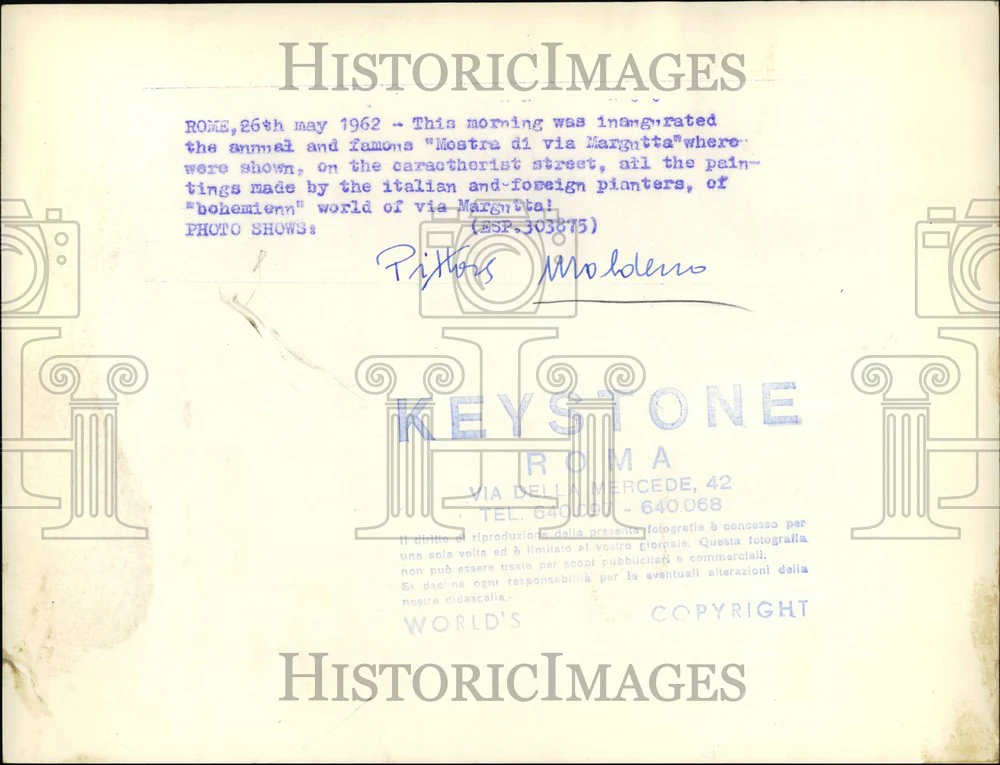 HISTORICIMAGES
ROME,26th may 1962 - This morning was inangnrated
the annual and famons "Mostra di via Margutta"where
were shown, on the caractherist street, all the pain-
tings made by the italian and foreign pianters, of
"bohemienn" world of via Margutta!
PHOTO SHOWS: (ESP.303875)
KEYSTONE
ROMA
VIA DELLA MERCEDE, 42
TEL. 640.097 - 640.068
Il diritto di riproduzione della presente fotografia è concesso per
una sola volta ed è limitato al vostro giornale. Questa fotografia
non può essere usata per scopi pubblicitari e commerciali.
Si declina ogni responsabilità per le eventuali alterazioni della
nostra didascalia.-
WORLD'S COPYRIGHT
HISTORICIMAGES